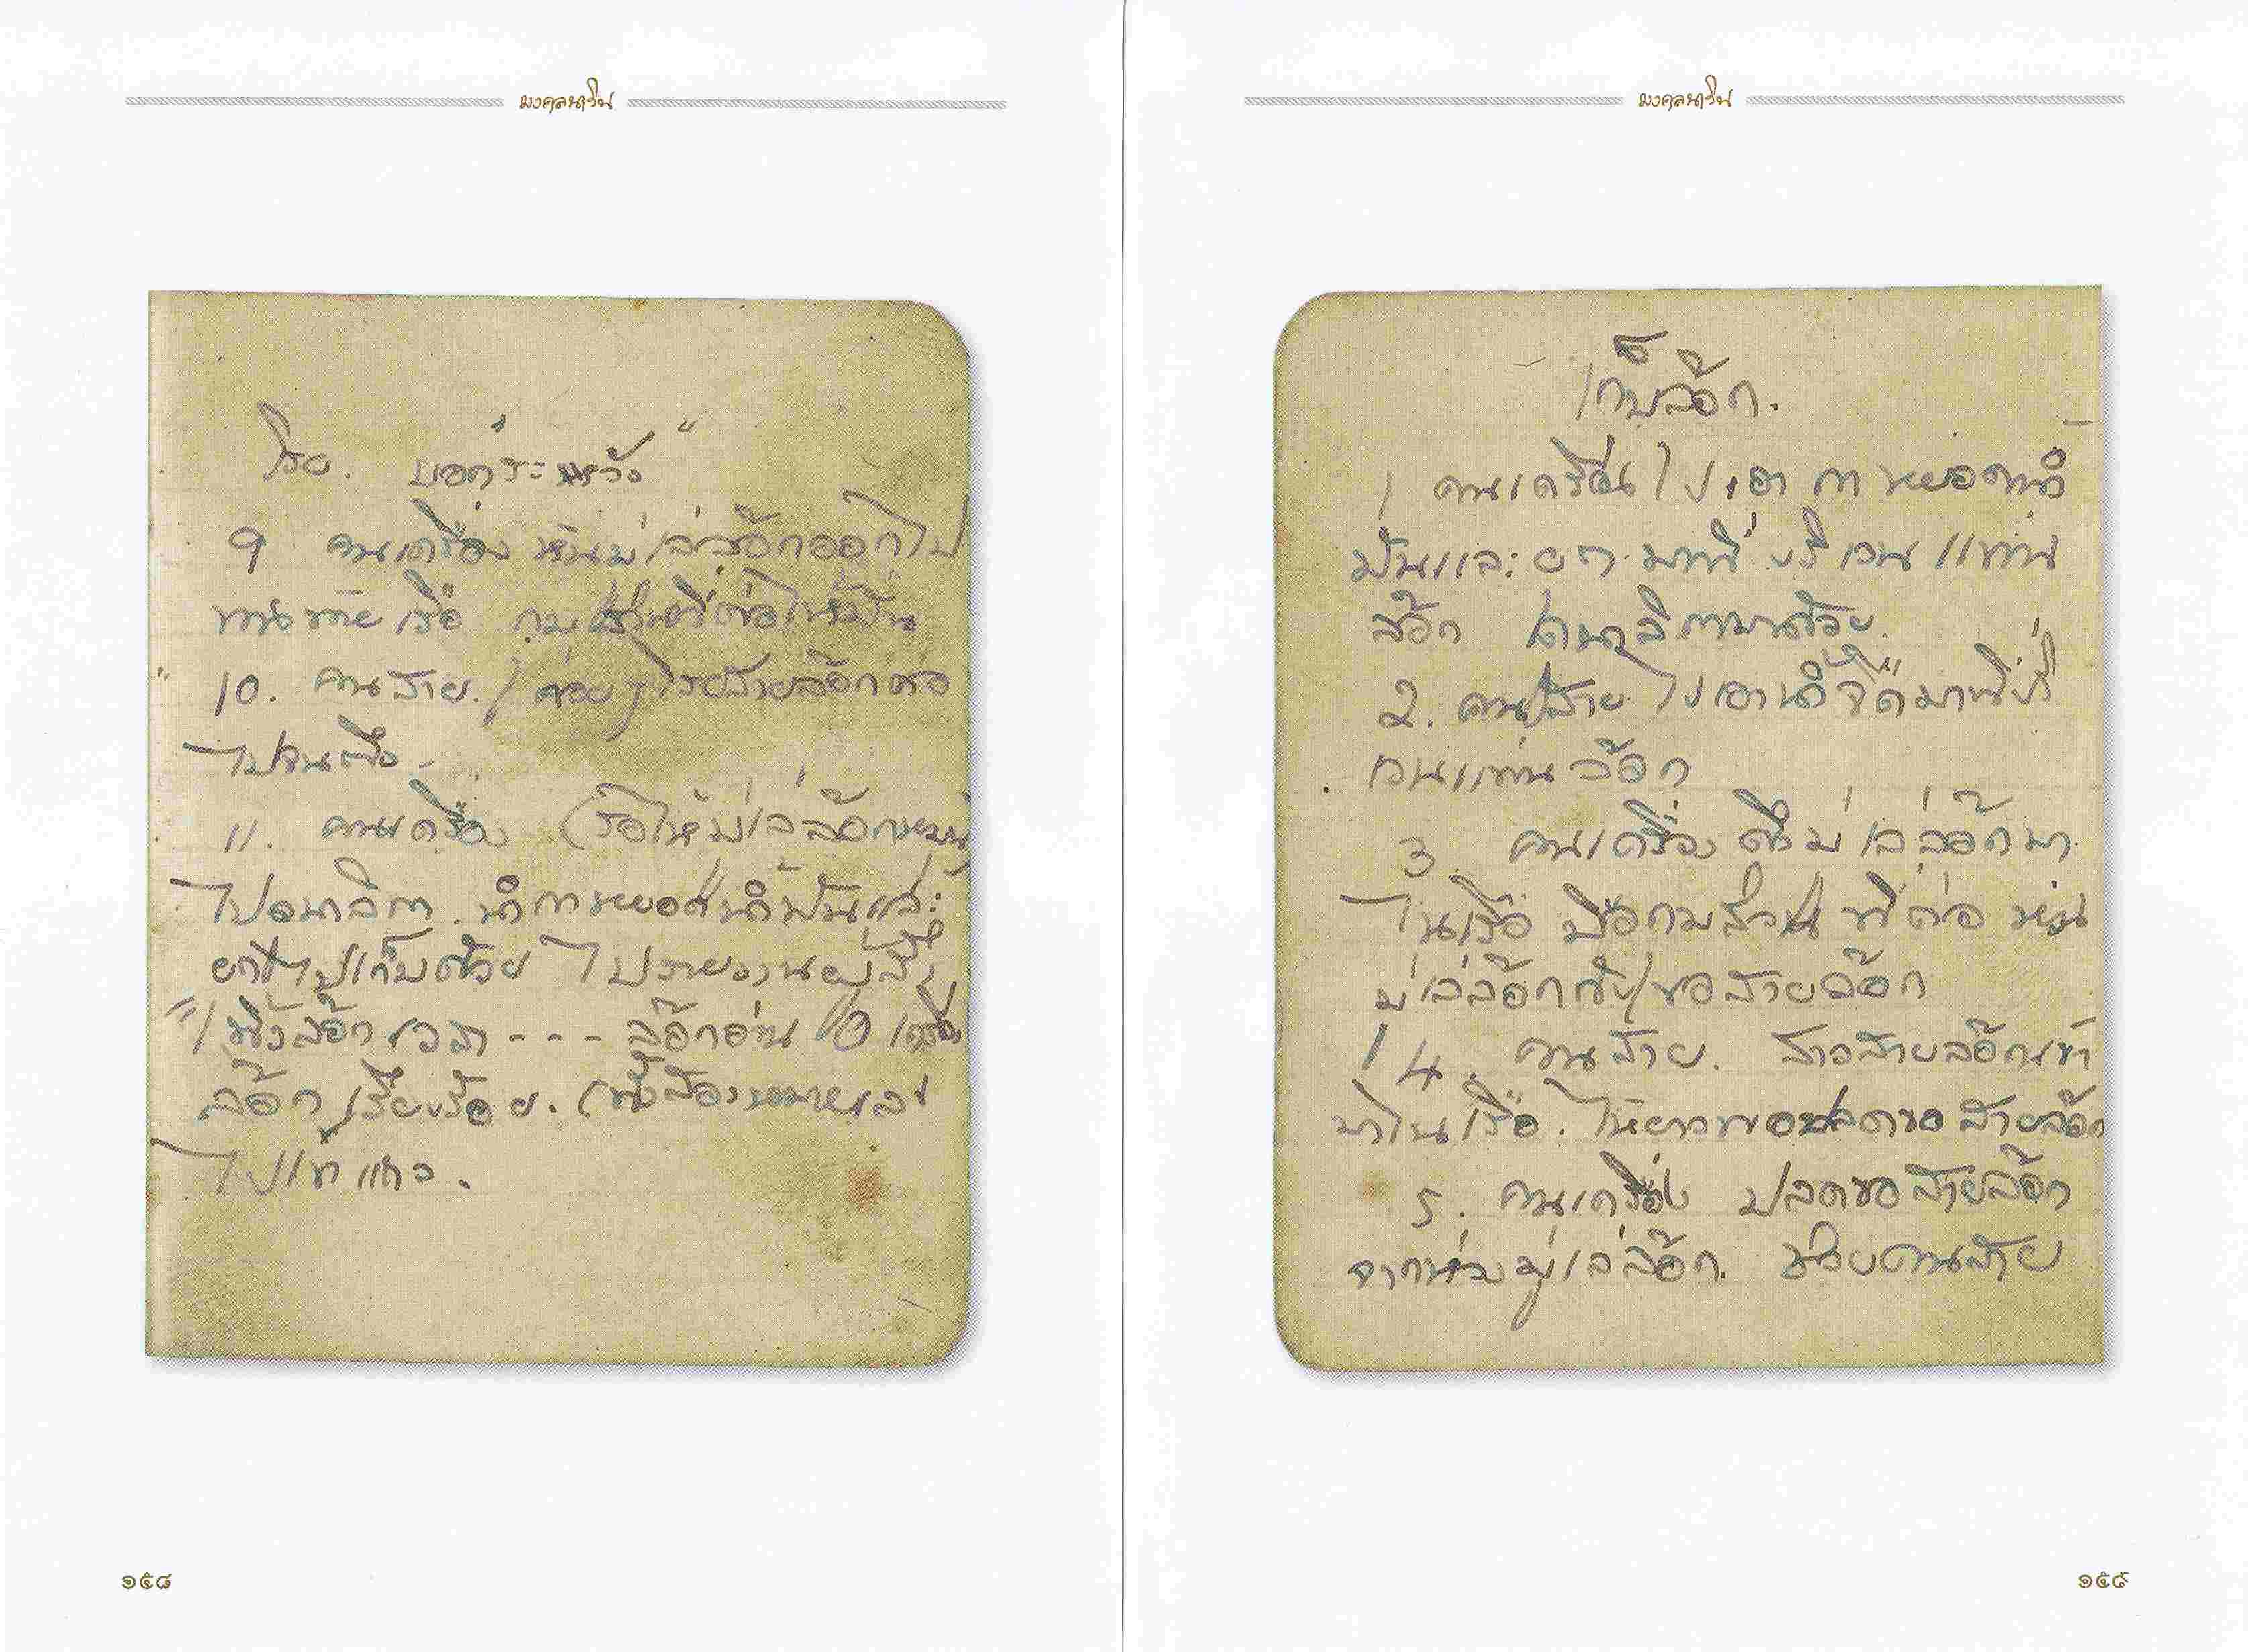 มงคลนาวิน
โรย. บอกระหวัง"
9 คนเครื่อง หันมู่เล่ล๊อกออกไป
ทางท้ายเรือ กุม ที่ต่อให้มั่น
10. คนสาย. ค่อยๆ โรยสายล๊อกต่อ
ไปจนตึง
11. คนเครื่อง (รอให้มู่เล่ล๊อกหมุน)
ไปอนาลิกา. นำกาหยอดน้ำมันและ
ยกไปเก็บด้วย ไปรายงานผู้สั่ง
"ทิ้งล๊อกเวลา - - - ล๊อกอ่าน 0 เครื่อง
ล๊อกเรียบร้อย. (ทั้งสองหมายเลข
ไปเข้าแถว.
๑๕๘
มงคลนาวิน
เก็บล๊อก.
1 คนเครื่อง ไปเอา กาหยอดน้ำ
มันและ ยก มาที่ บริเวณ แท่น
ล๊อก เดินนาลิกามาด้วย.
2. คนสาย ไปเอาน้ำจืดมาที่บริ
เวณแท่น ล๊อก
3. คนเครื่อง ดึงมู่เล่ล๊อกมา
ในเรือ มือกุมส่วน ที่ต่อ ห่วง
มู่เล่ล๊อกกับขอสายล๊อก
4. คนสาย. สาวสายล๊อกเข้า
มาในเรือ. ให้ยาวพอปลดขอสายล๊อก
5. คนเครื่อง ปลดขอสายล๊อก
จากห่วงมู่เล่ล๊อก. ช่วยคนสาย
๑๕๙